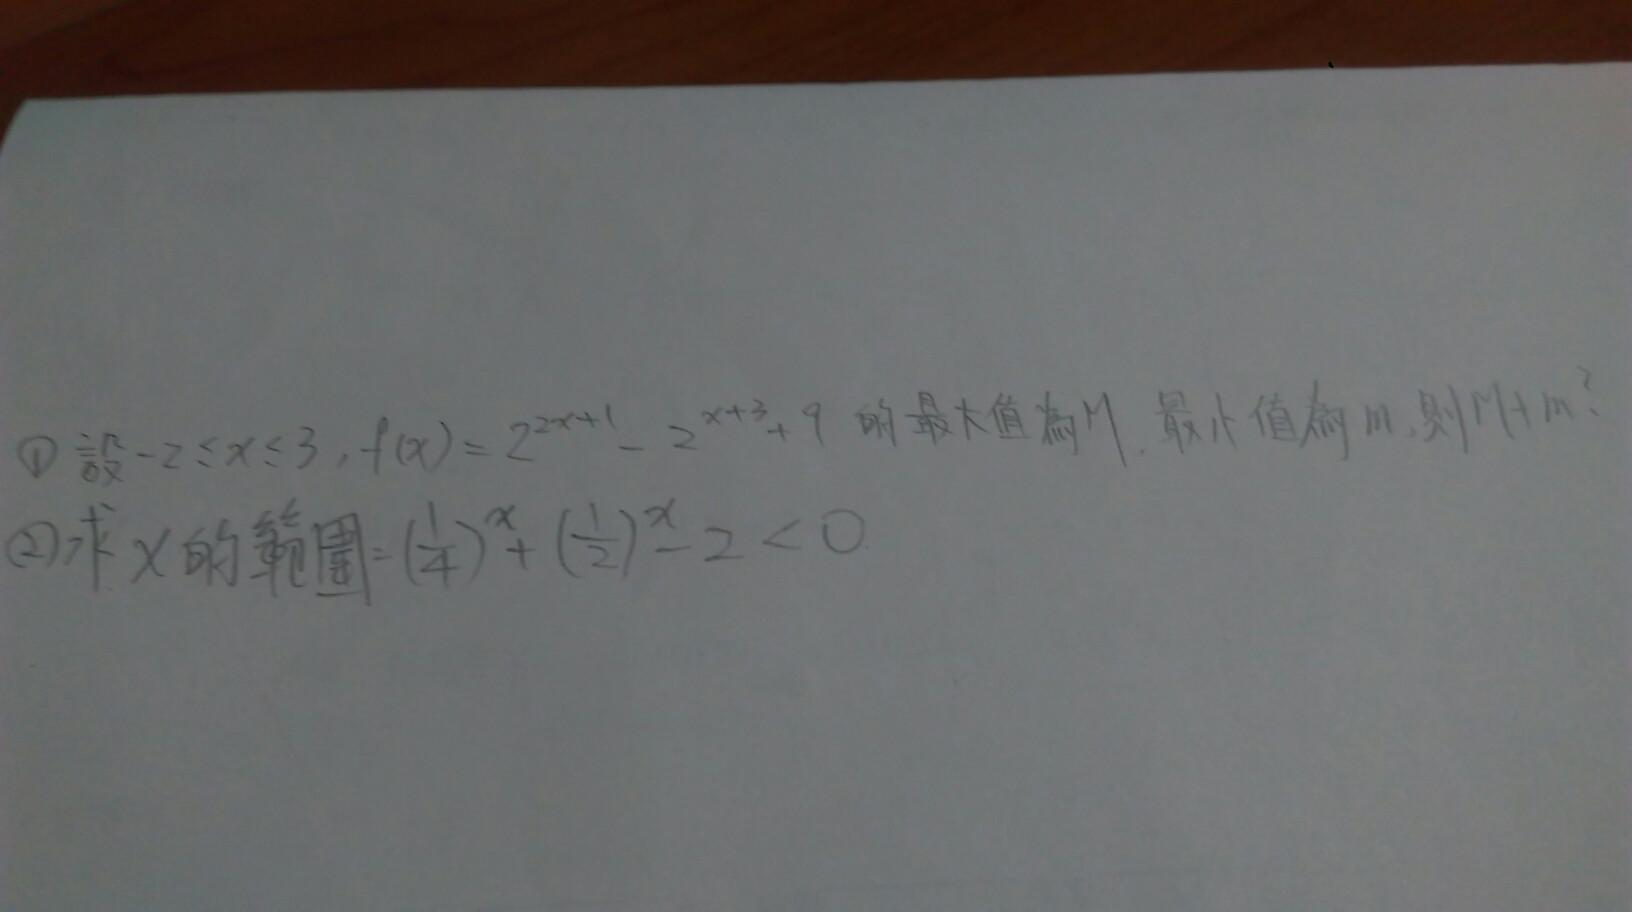 ① 設-2≤x≤3, f(x)=2^{2x+1}-2^{x+3}+9 的最大值為M, 最小值為m, 則M+m?
(2)求x的範圍=(1/4)^x+(1/2)^x-2<0